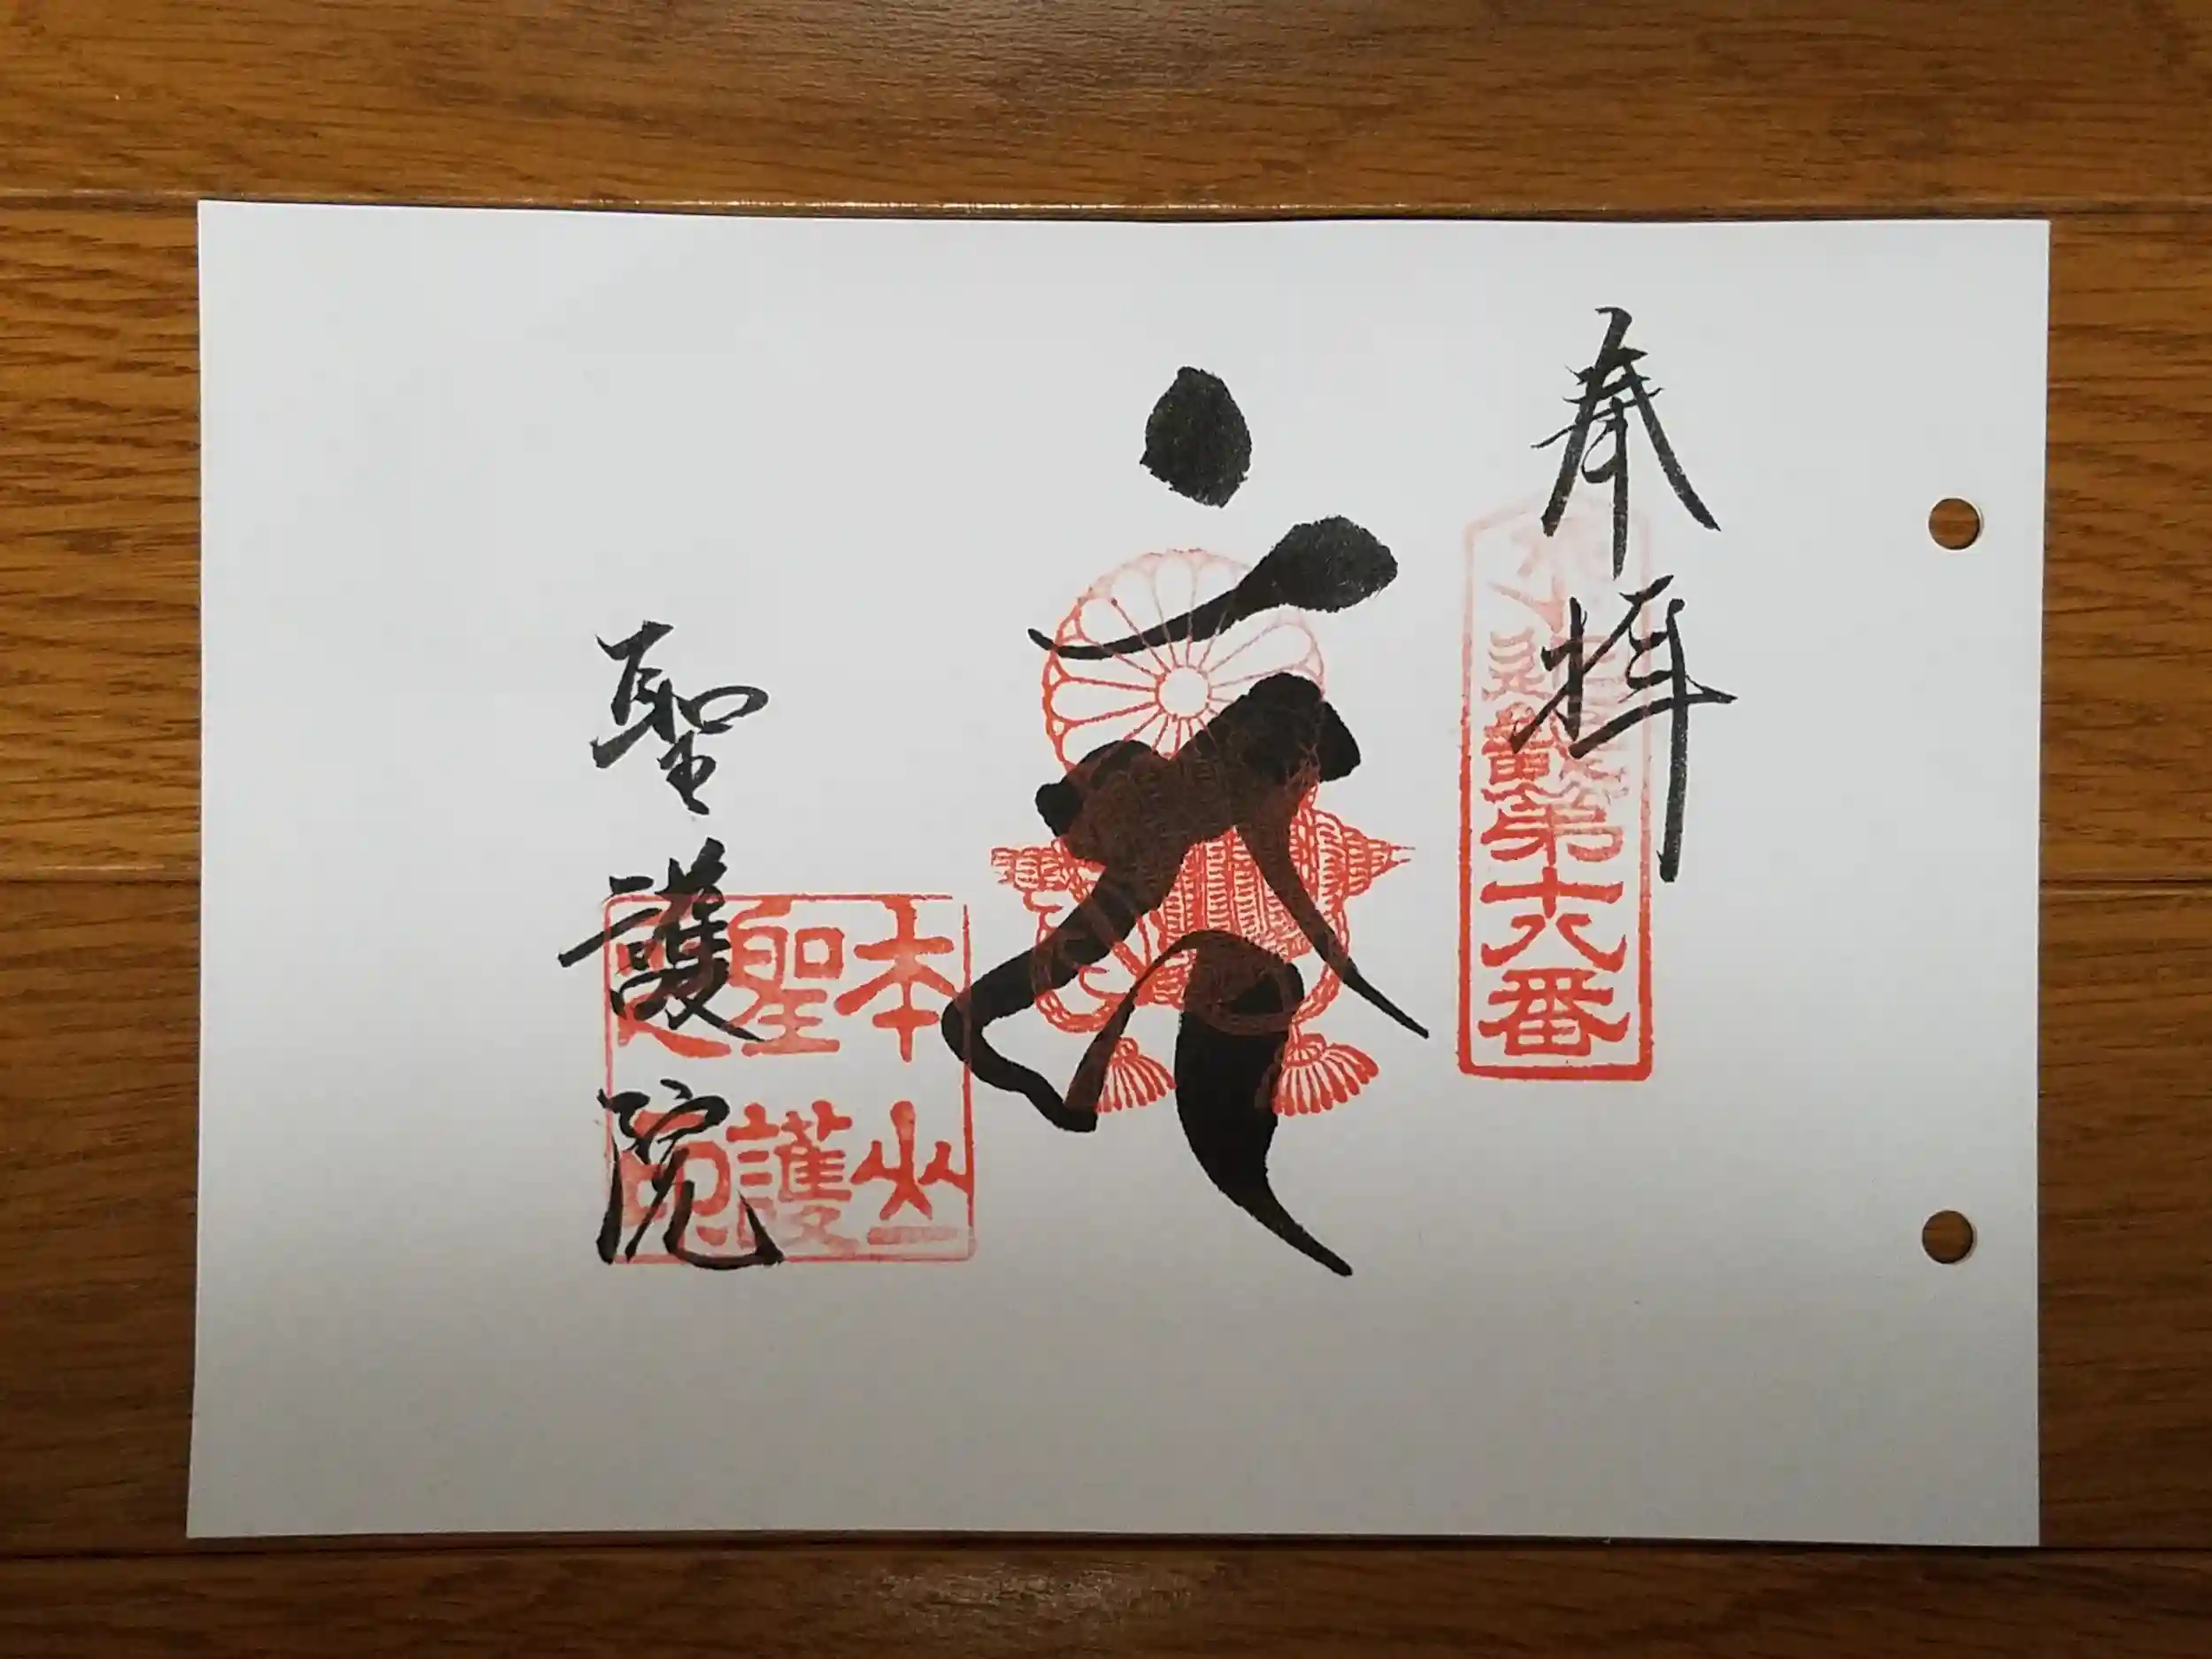 奉拝
第十八番
聖護院
本山
聖護